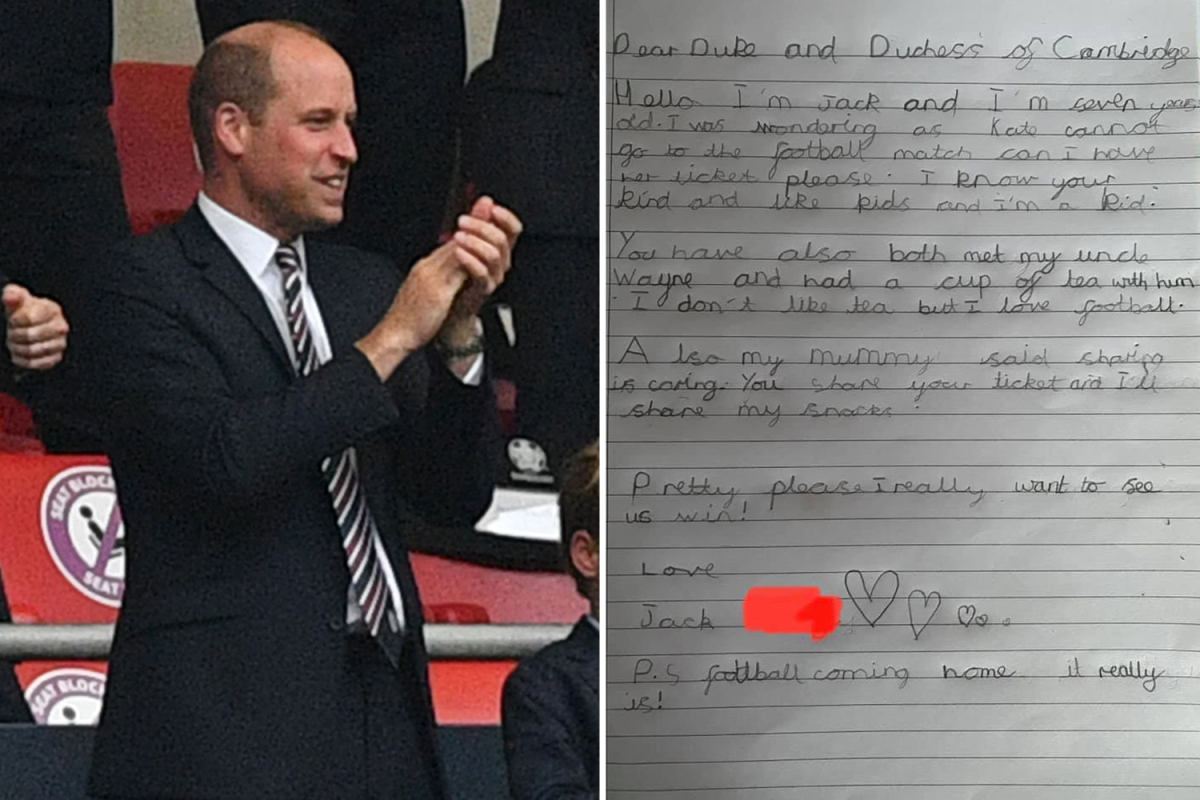 SEAT BLOCK
SEAT
SEAT BLOC
Dear Duke and Duchess of Cambridge
Hello I'm Jack and I'm seven years
old. I was wondering as Kate cannot
go to the football match can I have
her ticket please. I know your
kind and like kids and i'm a kid.
You have also both met my uncle
Wayne and had a cup of tea with him
. I don't like tea but I love football.
Also my mummy said sharing
is caring. You share your ticket and I'll
share my snacks.
Pretty please I really want to see
us win!
Love
Jack
P.S football coming home it really
is!